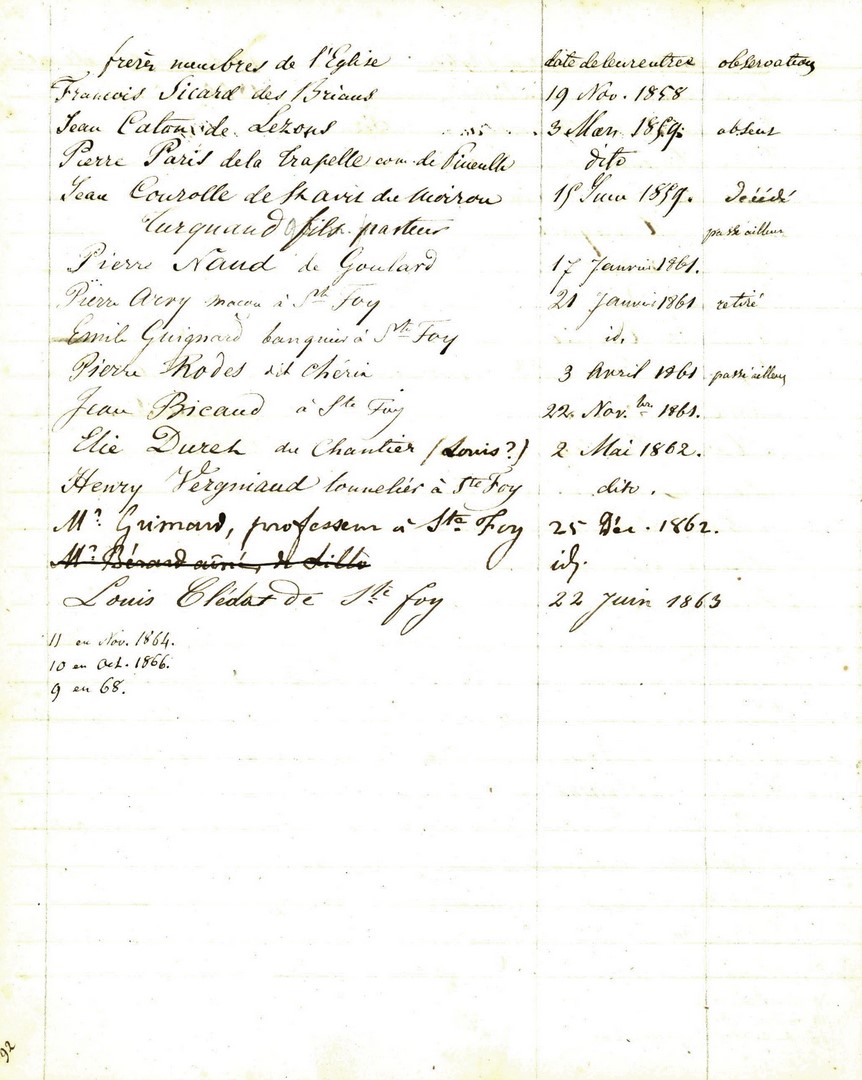 frères membres de l'Eglise date de leur entrée observation
Francois Sicard des Briaus 19 Nov. 1858
Jean Caton de Lezons 3 Mars 1859. absent
Pierre Paris de la trapelle com. de Pineuilh dito
Jean Courolle de St avit du Moiron 15 Juin 1859. décédé
Turgnaud fils pasteur passé ailleurs
Pierre Naud de Goulard 17 Janvier 1861.
Pierre Arvy macon à Ste Foy 21 Janvier 1861 retiré
Emile Guignard banquier à Ste Foy id.
Pierre Rodes dit chérin 3 Avril 1861 passé ailleurs
Jean Bricaud à Ste Foy 22. Nov.bre 1861.
Elie Duret du Chantier (Louis?) 2 Mai 1862.
Henry Vergniaud tonnelier à Ste Foy dito.
Mr. Grimard, professeur à Ste Foy 25 Déc. 1862.
Mr. Bérard ainé, de ditto id.
Louis Clédat de Ste foy 22 Juin 1863
11 en Nov. 1864.
10 en Oct. 1866.
9 en 68.
92